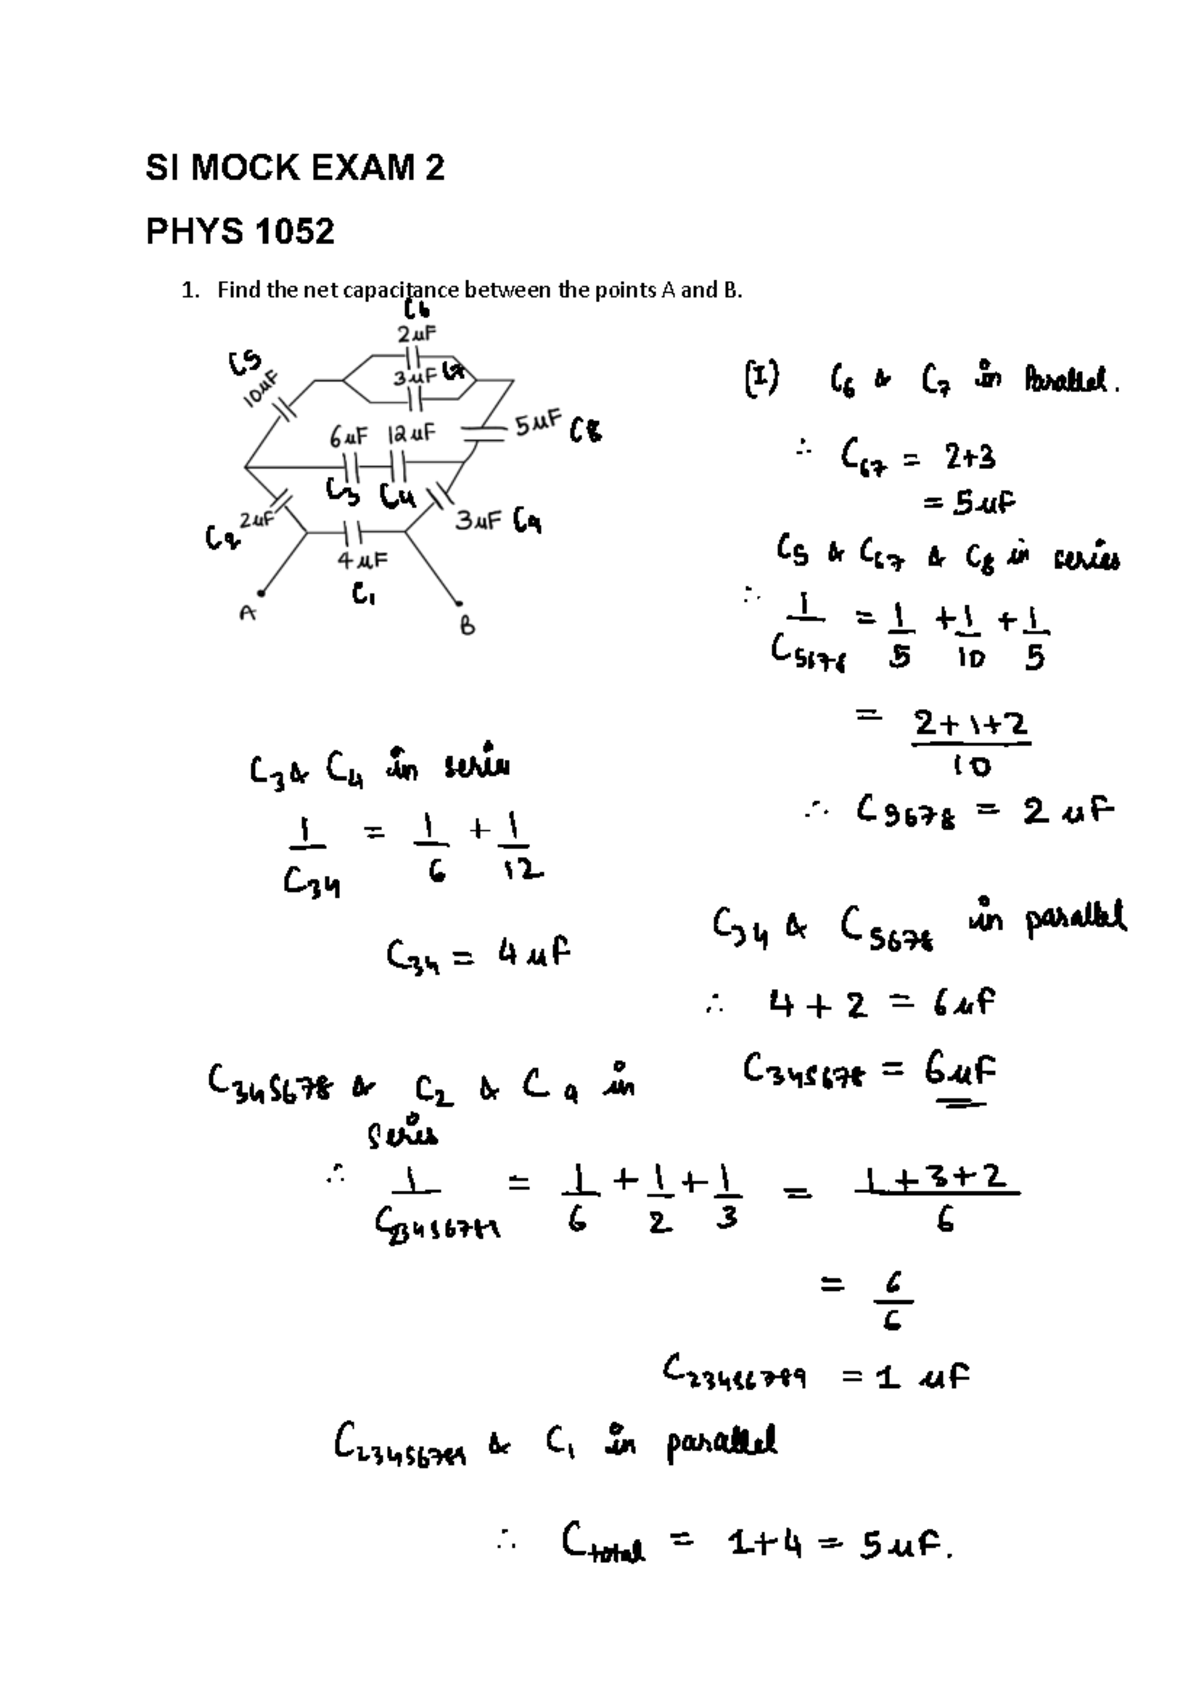 SI MOCK EXAM 2
PHYS 1052
1. Find the net capacitance between the points A and B.
C6
2uF
C5
10uF
3uF C7
6uF 12uF
5uF C8
C3 C4
2uF
C2
3uF C9
4uF
C1
A
B
(I) C6 & C7 in Parallel.
∴ C67 = 2+3
= 5uF
C5 & C67 & C8 in series
∴ 1/C5678 = 1/5 + 1/10 + 1/5
= 2+1+2/10
∴ C5678 = 2 uF
C3 & C4 in series
1/C34 = 1/6 + 1/12
C34 = 4uF
C34 & C5678 in parallel
∴ 4 + 2 = 6uF
C345678 = 6uF
C345678 & C2 & C9 in
series
∴ 1/C23456789 = 1/6 + 1/2 + 1/3 = 1+3+2/6
= 6/6
C23456789 = 1 uF
C23456789 & C1 in parallel
∴ Ctotal = 1+4 = 5uF.